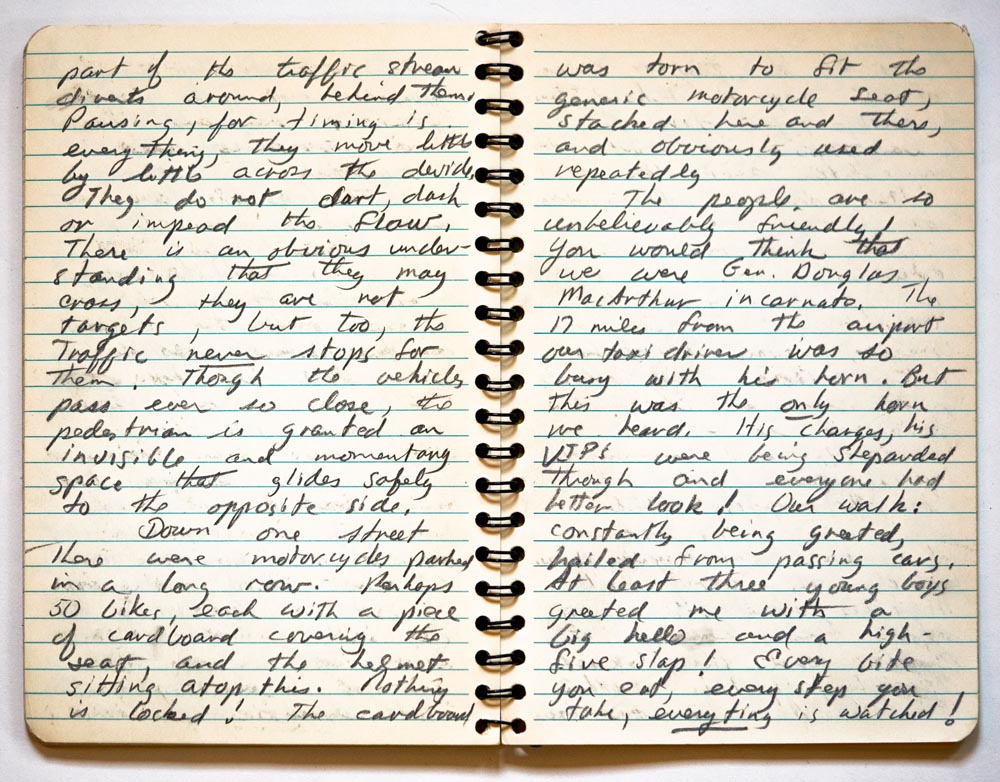 part of the traffic stream
diverts around, behind them.
Pausing, for timing is
everything, they move little
by little across the divide.
They do not dart, dash
or impead the flow.
There is an obvious under-
standing that they may
cross, they are not
targets, but too, the
Traffic never stops for
them. Though the vehicles
pass ever so close, the
pedestrian is granted an
invisible and momentary
space that glides safely
to the opposite side.
Down one street
there were motorcycles parked
in a long row. Perhaps
50 bikes, each with a piece
of cardboard covering the
seat, and the helmet
sitting atop this. Nothing
is locked! The cardboard
was torn to fit the
generic motorcycle seat,
stacked here and there,
and obviously used
repeatedly
The people are so
unbelievably friendly!
You would think that
we were Gen. Douglas
MacArthur incarnate. The
17 miles from the airport
our taxi driver was so
busy with his horn. But
this was the only horn
we heard. His charges, his
VIPs were being sheparded
through and everyone had
better look! Our walk:
constantly being greeted,
hailed from passing cars.
At least three young boys
greeted me with a
big hello and a high-
five slap! Every bite
you eat, every step you
take, everyting is watched!